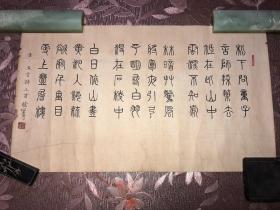 松下問童子
言師採藥去
只在此山中
雲深不知處
林暗草驚風
將軍夜引弓
平明尋白羽
沒在石棱中
白日依山盡
黃河入海流
欲窮千里目
更上一層樓
五言詩三首